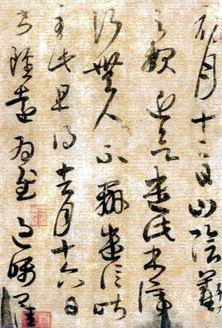 初月十二日山陰羲
之報近欲遣此書停
行無人不辦遣信昨
至此且得去月十六日
書雖遠為慰過囑卿